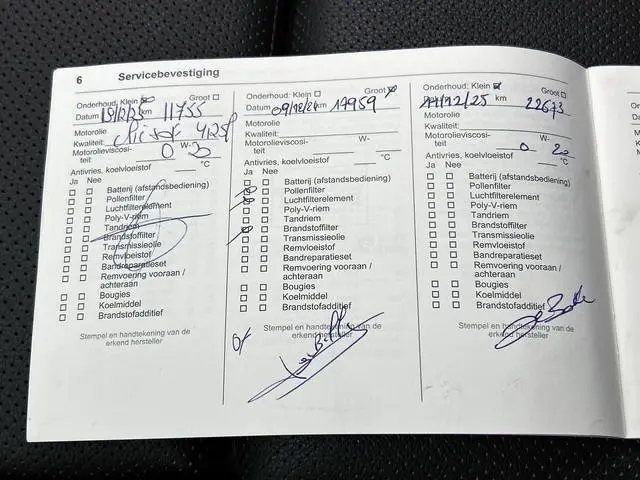 6 Servicebevestiging
Onderhoud: Klein Groot
Datum km 11755
Motorolie
Kwaliteit:
Motorolieviscosi- W-
teit 0 20
Antivries, koelvloeistof °C
Ja Nee
Batterij (afstandsbediening)
Pollenfilter
Luchtfilterelement
Poly-V-riem
Tandriem
Brandstoffilter
Transmissieolie
Remvloeistof
Bandreparatieset
Remvoering vooraan /
achteraan
Bougies
Koelmiddel
Brandstofadditief
Stempel en handtekening van de
erkend hersteller
Onderhoud: Klein Groot
Datum 09/12/24 km 17959
Motorolie
Kwaliteit:
Motorolieviscosi- W-
teit
Antivries, koelvloeistof °C
Ja Nee
Batterij (afstandsbediening)
Pollenfilter
Luchtfilterelement
Poly-V-riem
Tandriem
Brandstoffilter
Transmissieolie
Remvloeistof
Bandreparatieset
Remvoering vooraan /
achteraan
Bougies
Koelmiddel
Brandstofadditief
Stempel en handtekening van de
erkend hersteller
Onderhoud: Klein Groot
Datum /12/25 km 22673
Motorolie
Kwaliteit:
Motorolieviscosi- W-
teit 0 20
Antivries, koelvloeistof °C
Ja Nee
Batterij (afstandsbediening)
Pollenfilter
Luchtfilterelement
Poly-V-riem
Tandriem
Brandstoffilter
Transmissieolie
Remvloeistof
Bandreparatieset
Remvoering vooraan /
achteraan
Bougies
Koelmiddel
Brandstofadditief
Stempel en handtekening van de
erkend hersteller